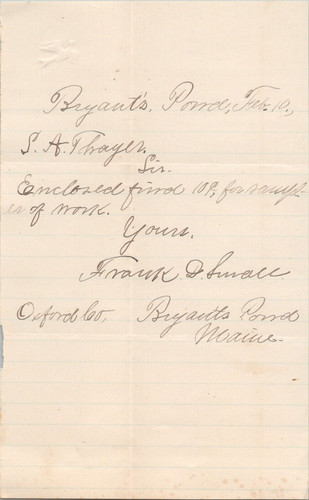 Bryant's. Pond, Feb. 10.,
S. A. Thayer.
Sir.
Enclosed find 10¢, for sampl-
es of work.
Yours.
Frank D. Small
Oxford Co. Bryants Pond
Maine.